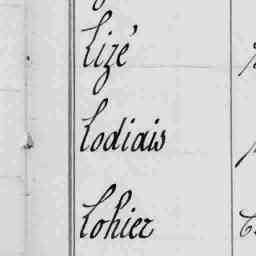 Lizé
Lodiais
Lohier